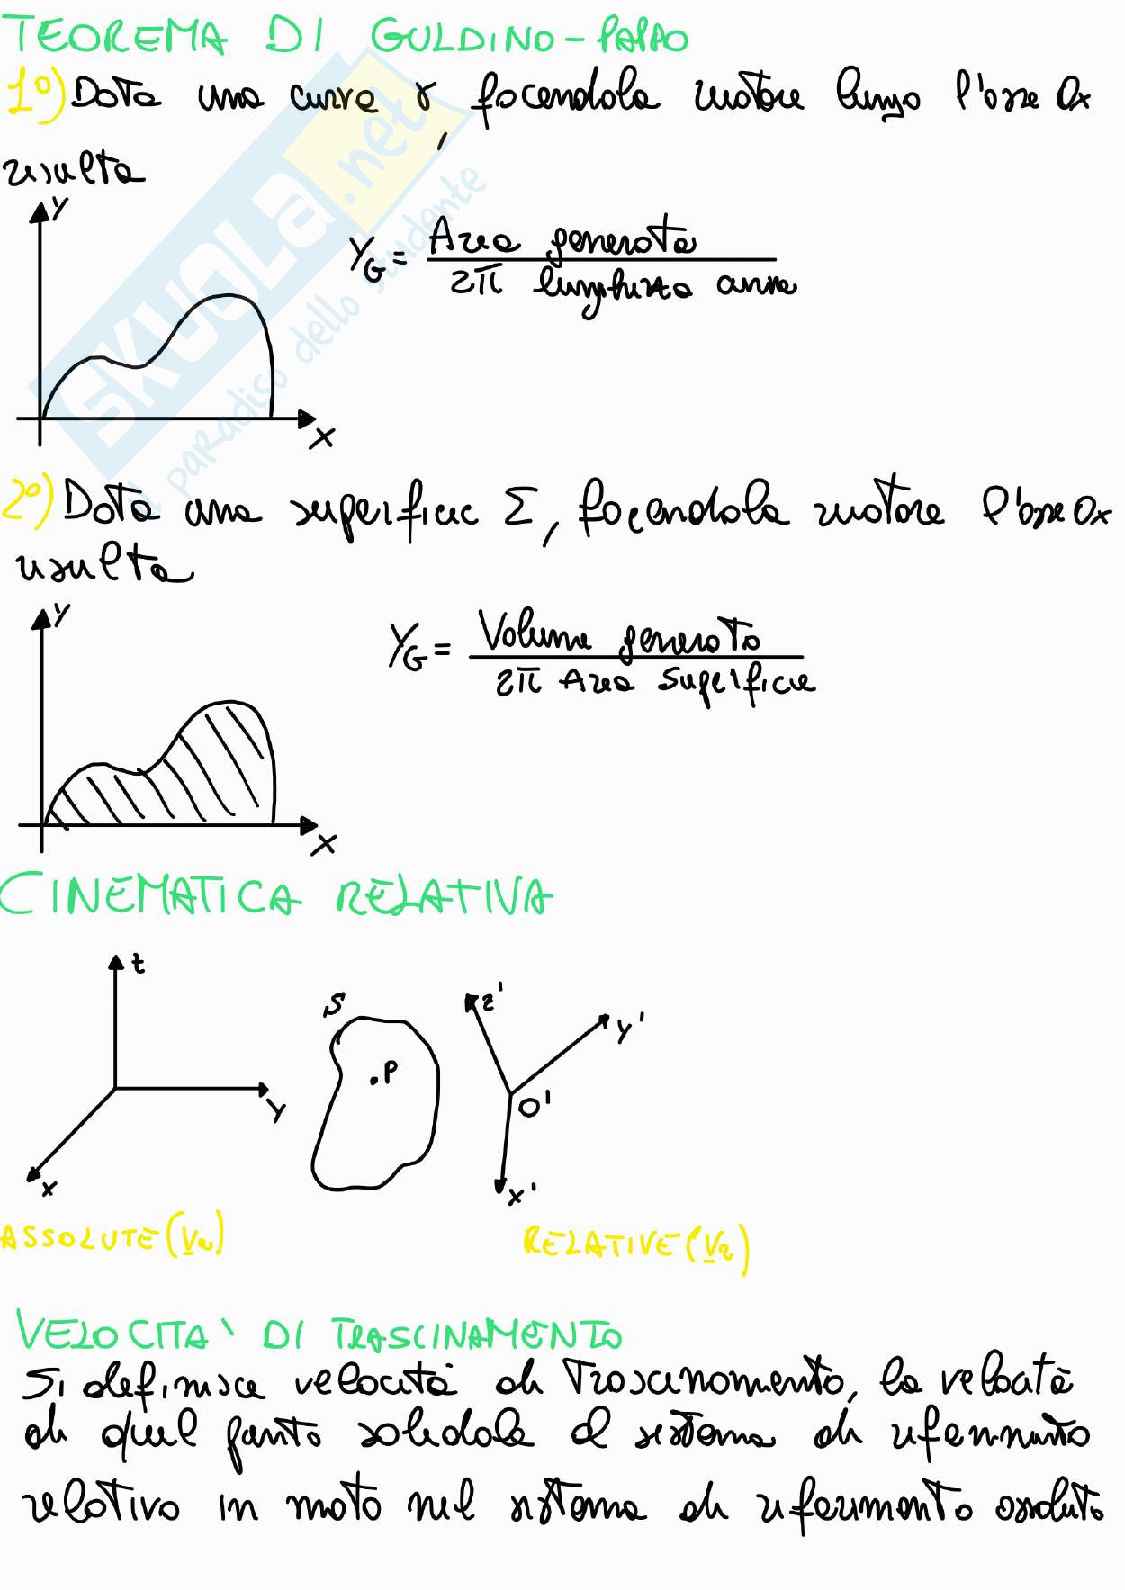 TEOREMA DI GULDINO-PAPPO
1°) Data una curva γ, facendola ruotare lungo l'asse Ox
risulta
Y
Y_G = Area generata / 2π lunghezza curva
X
2°) Data una superficie Σ, facendola ruotare l'asse Ox
risulta
Y
Y_G = Volume generato / 2π Area Superficie
X
CINEMATICA RELATIVA
z
S
z'
y'
.P
O'
y
x
x'
ASSOLUTE (Va)
RELATIVE (Vr)
VELOCITA' DI TRASCINAMENTO
Si definisce velocità di Trascinamento, la velocità
di quel punto solidale al sistema di riferimento
relativo in moto nel sistema di riferimento assoluto
SKUOLA.net
il paradiso dello studente